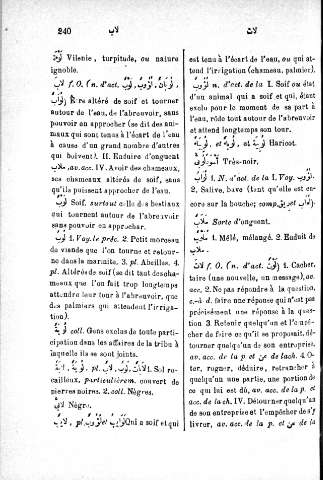 240
لاب
لات
لُؤْبَة Vilenie, turpitude, ou nature
ignoble.
لَابَ f. O. (n. d'act. لَوْب, لُوب, لَوَبَان,
لُوَاب) Etre altéré de soif et tourner
autour de l'eau, de l'abreuvoir, sans
pouvoir en approcher (se dit des ani-
maux qui sont tenus à l'écart de l'eau
à cause d'un grand nombre d'autres
qui boivent). II. Enduire d'onguent
ملاب, av. acc. IV. Avoir des chameaux,
ses chameaux altérés de soif, sans
qu'ils puissent approcher de l'eau.
لَوْب Soif, surtout celle des bestiaux
qui tournent autour de l'abreuvoir
sans pouvoir en approcher.
لُوب 1. Voy. le préc. 2. Petit morceau
de viande que l'on tourne et retour-
ne dans la marmite. 3. pl. Abeilles. 4.
pl. Altérés de soif (se dit tant des cha-
meaux que l'on fait trop longtemps
attendre leur tour à l'abreuvoir, que
des palmiers qui attendent l'irriga-
tion).
لُوبَة coll. Gens exclus de toute parti-
cipation dans les affaires de la tribu à
laquelle ils se sont joints.
لَابَة, pl. لَاب, لُوب, pl. لَابَات 1. Sol ro-
cailleux, particulièrem. couvert de
pierres noires. 2. coll. Nègres.
لَابِيّ Nègre.
لَائِب, pl. لُؤُوب et لَوَائِب Qui a soif et qui
est tenu à l'écart de l'eau, ou qui at-
tend l'irrigation (chameau, palmier).
لُوَاب n. d'act. de la I. Soif ou état
d'un animal qui a soif et qui, étant
exclu pour le moment de sa part à
l'eau, rôde tout autour de l'abreuvoir
et attend longtemps son tour.
لُوبِيَاء et لُوبِيَة Haricot.
لُوبِيّ Très-noir.
لُوَاب 1. N. d'act. de la I. Voy. لوب.
2. Salive, bave (tant qu'elle est en-
core sur la bouche; comp. ريق).
مَلَاب Sorte d'onguent.
مُلَوَّب 1. Mêlé, mélangé. 2. Enduit de
ملاب.
لَاتَ f. O. (n. d'act. لَوْت) 1. Cacher,
taire (une nouvelle, un message), av.
acc. 2. Ne pas répondre à la question,
c.-à-d. faire une réponse qui n'est pas
précisément une réponse à la ques-
tion 3. Retenir quelqu'un et l'empê-
cher de faire ce qu'il se proposait, dé-
tourner quelqu'un de son entreprise,
av. acc. de la p. et عن de la ch. 4. O-
ter, rogner, déduire, retrancher à
quelqu'un une partie, une portion de
ce qui lui est dû, av. acc. de la p. et
acc. de la ch. IV. Détourner quelqu'un
de son entreprise et l'empêcher de s'y
livrer, av. acc. de la p. et عن de la